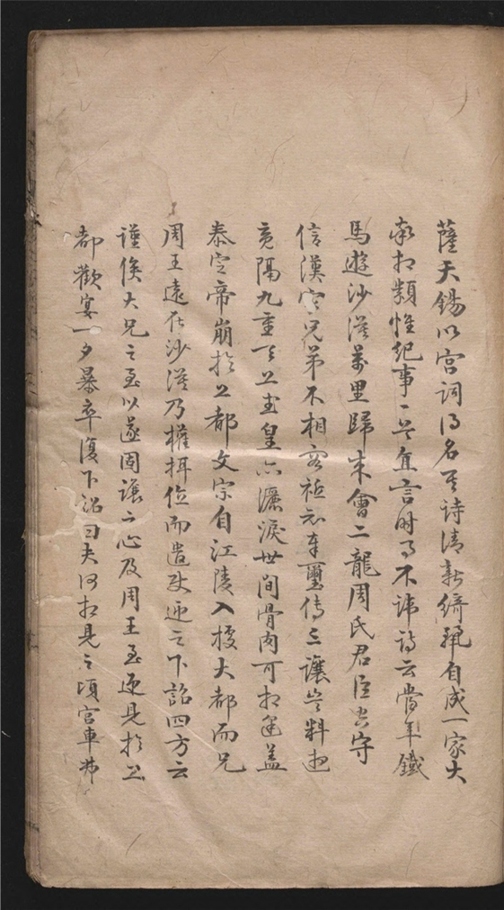 薩天錫以宮詞得名其詩清新綺麗自成一家大
率相類惟紀事一首直言時事不諱詩云當年鐵
馬遊沙漠萬里歸來會二龍周氏君臣空守
信漢家兄弟不相容祗知奉璽傳三讓豈料遊
魂隔九重天上武皇亦灑淚世間骨肉可相逢蓋
泰定帝崩於上都文宗自江陵入據大都而兄
周王遠在沙漠乃權攝位而遣使迎之下詔四方云
謹俟大兄之至以遂固讓之心及周王至迎見於上
都歡宴一夕暴卒復下詔曰夫何相見之頃宮車弗